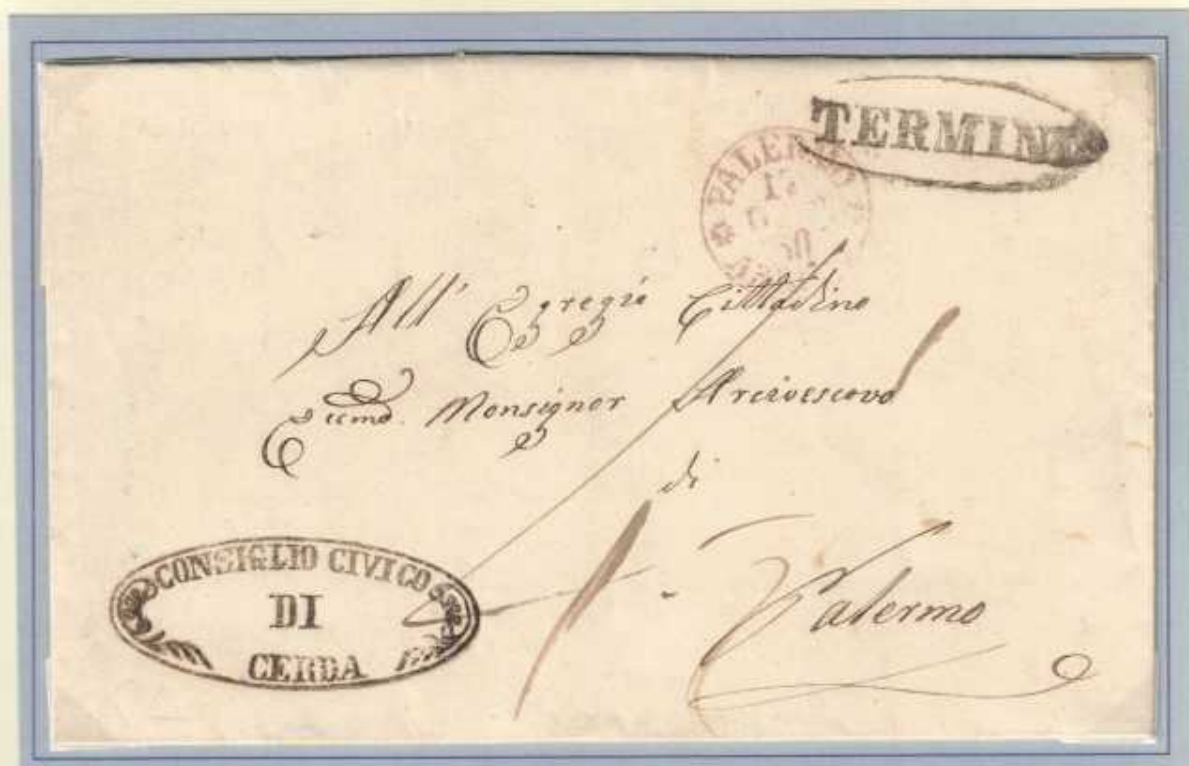 TERMINI
PALERMO
17
All' Egregio Cittadino
Eccmo. Monsignor Arcivescovo
di
Palermo
CONSIGLIO CIVICO
DI
CERDA